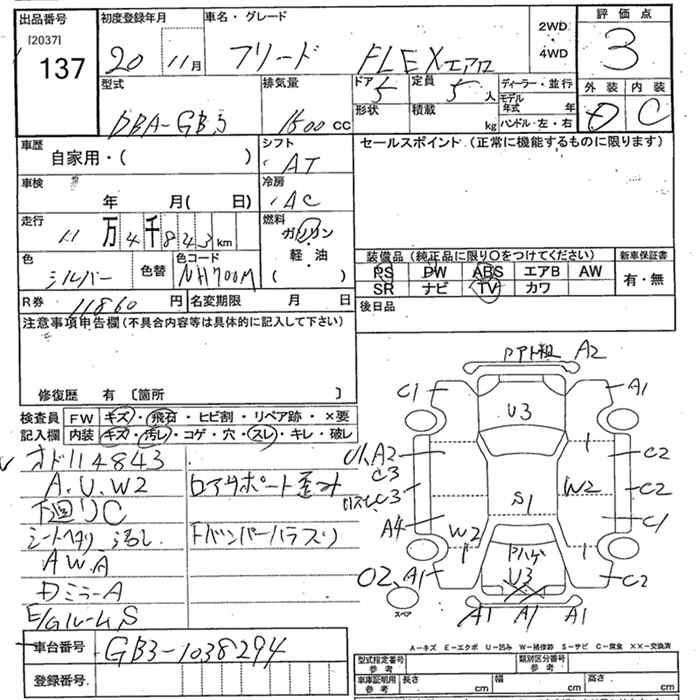 出品番号 初度登録年月 車名・グレード 2WD・4WD 評価点
[2037]
137 20年 11月 フリード FLEX エアロ 3
型式 排気量 ドア 定員 ディーラー・並行 外装 内装
DBA-GB3 1500 CC 5 5人 モデル年式 年 D C
形状 積載 kg ハンドル・左・右
車歴 自家用・( ) シフト AT セールスポイント (正常に機能するものに限ります)
車検 年 月( 日) 冷房 AC
走行 11万4千843km 燃料 ガソリン・軽油 ( )
色 シルバー 色替 色コード NH700M
装備品 (純正品に限り○をつけてください) 新車保証書
PS PW ABS エアB AW 有・無
SR ナビ TV カワ
R券 11860円 名変期限 月 日 後日品
注意事項申告欄 (不具合内容等は具体的に記入して下さい)
修復歴 有 [箇所 ]
検査員 FW キズ・飛石・ヒビ割・リペア跡・×要
記入欄 内装 キズ・汚レ・コゲ・穴・スレ・キレ・破レ
オド114843
A.U.W2 ロアサポート歪み
下廻りC
シートヘタリ 汚レ Fバンパーハラスリ
AW.A
Dミラー A
E/Gルーム S
A2
C1 A1
U3
U1,A2 C2
C3
C3 S1 W2 C2
A4 W2 C1
02,A1 U3 C2
スペア
A1 A1 A1
A―キズ E―エクボ U―凹み W―補修跡 S―サビ C―腐食 XX―交換済
車台番号 GB3-1038294
登録番号
型式指定番号 参考 類別区分番号 参考
車庫証明用 参考 長さ cm 幅 cm 高さ cm